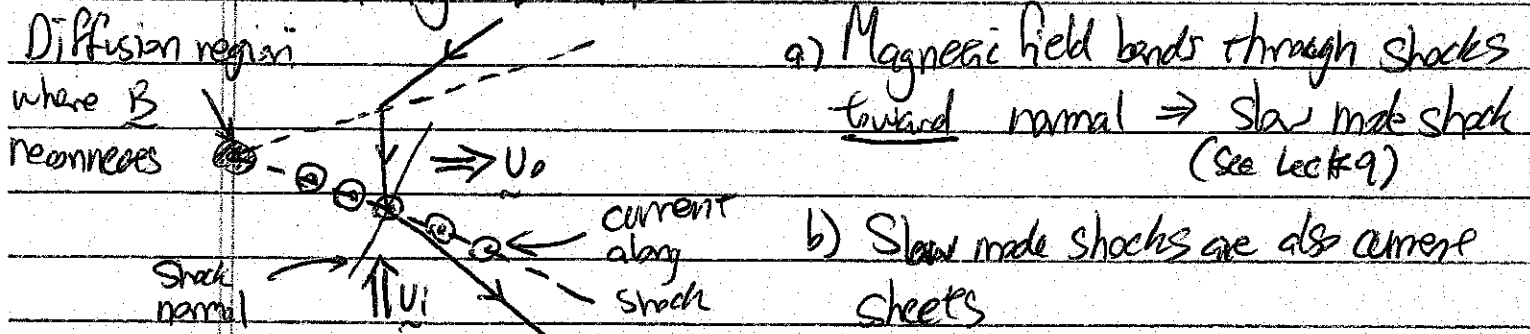 Diffusion region
where B
reconnects
U₀
current
along
shock
Shock
normal
Ui
a) Magnetic field bends through shocks
toward normal ⇒ slow mode shock
(See Lec #9)
b) Slow mode shocks are also current
sheets